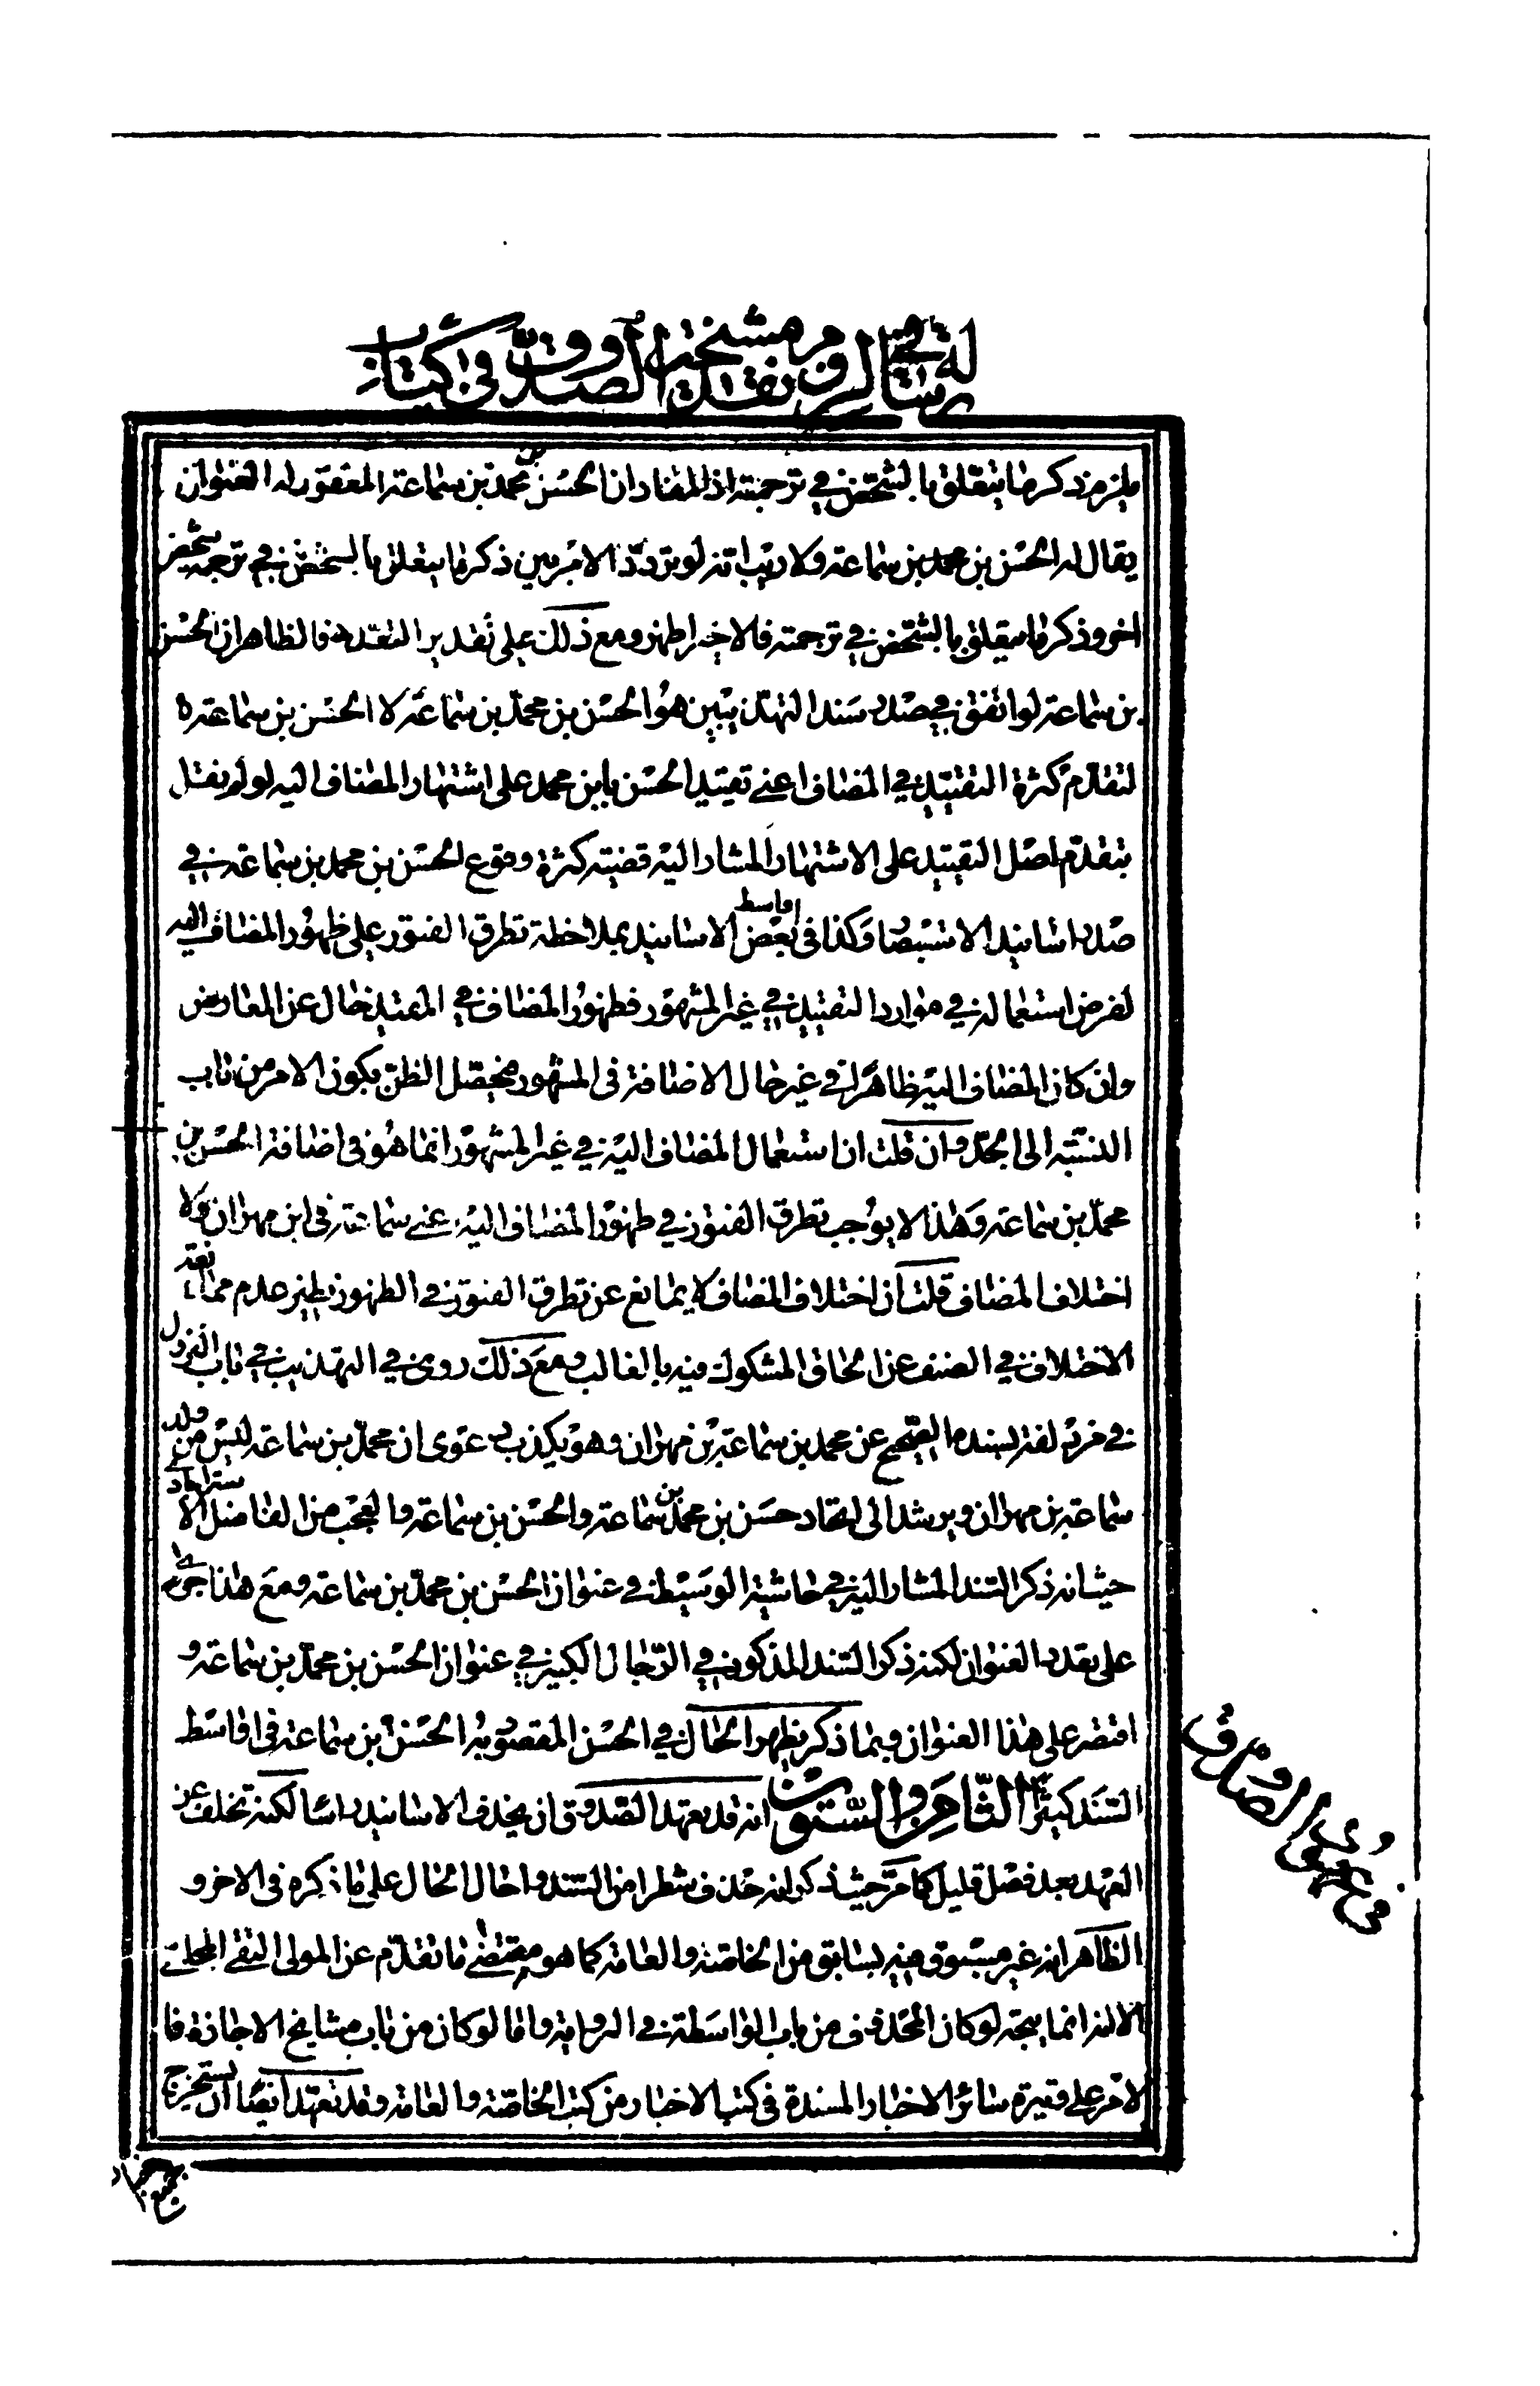 رسالة في نقد مشيخة الصدوق في كتاب
يلزم ذكر ما يتعلق بالشخص في ترجمته اذ المفاد ان الحسن بن محمد بن سماعة المعقود له العنوان
يقال له الحسن بن محمد بن سماعة ولا ريب انه لو تردد الامر بين ذكر ما يتعلق بالشخص في ترجمة شخص
اخر وذكر ما يتعلق بالشخص في ترجمته فالاخير اظهر ومع ذلك على تقدير التعدد فالظاهر ان الحسن
بن سماعة لو اتفق في صدر سند التهذيبين هو الحسن بن محمد بن سماعة لا الحسن بن سماعة
لتقدم كثرة التقييد في المضاف اعني تقييد الحسن بابن محمد على اشتهار المضاف اليه لو لم نقل
بتقدم اصل التقييد على الاشتهار المشار اليه قضية كثرة وقوع الحسن بن محمد بن سماعة في
صدر اسانيد الاستبصار وكذا في اواسط بعض الاسانيد بملاحظة تطرق الفتور على ظهور المضاف اليه
لفرض استعماله في موارد التقييد في غير المشهور فظهور المضاف في المقيد خال عن المعارض
وان كان المضاف اليه ظاهرا في غير حال الاضافة في المشهور فيحصل الظن بكون الامر من باب
النسبة الى الجد وان قلت ان استعمال المضاف اليه في غير المشهور انما هو في اضافة الحسن بن
محمد بن سماعة وهذا لا يوجب تطرق الفتور في ظهور المضاف اليه اعني سماعة في ابن مهران ولا
اختلاف المضاف قلت ان اختلاف المضاف لا يمانع عن تطرق الفتور في الظهور نظير عدم ممانعة
الاختلاف في الصنف عن الحاق المشكوك فيه بالغالب ومع ذلك روى في التهذيب في باب النزول
في مزدلفة بسنده الصحيح عن محمد بن سماعة بن مهران وهو يكذب دعوى ان محمد بن سماعة ليس من ولد
سماعة بن مهران ويرشد الى اتحاد حسن بن محمد بن سماعة والحسن بن سماعة والعجب من الفاضل الاسترابادي
حيث انه ذكر السند المشار اليه في حاشية الوسيط في عنوان الحسن بن محمد بن سماعة ومع هذا جرى
على تعدد العنوان لكنه ذكر السند المذكور في الرجال الكبير في عنوان الحسن بن محمد بن سماعة و
اقتصر على هذا العنوان وبما ذكر يظهر الحال في الحسن المقصود به الحسن بن سماعة في اواسط
السند كثيرا الثامن والستون انه قد تعهد الصدوق ان يحذف الاسانيد راسا لكنه تخلف عن
العهد بعد فصل قليل كما مر حيث ذكر انه حذف شطرا من السند واحال الحال على ما ذكره في الاخر و
الظاهر انه غير مسبوق فيه بسابق من الخاصة والعامة كما هو مقتضى ما تقدم عن المولى التقي المجلسي
الا انه انما يتجه لو كان المحذوف من باب الواسطة في الرواية واما لو كان من باب مشايخ الاجازة فا
لامر على وتيرة سائر الاخبار المسندة في كتب الاخبار من كتب الخاصة والعامة وقد تعهد ايضا ان يستخرج